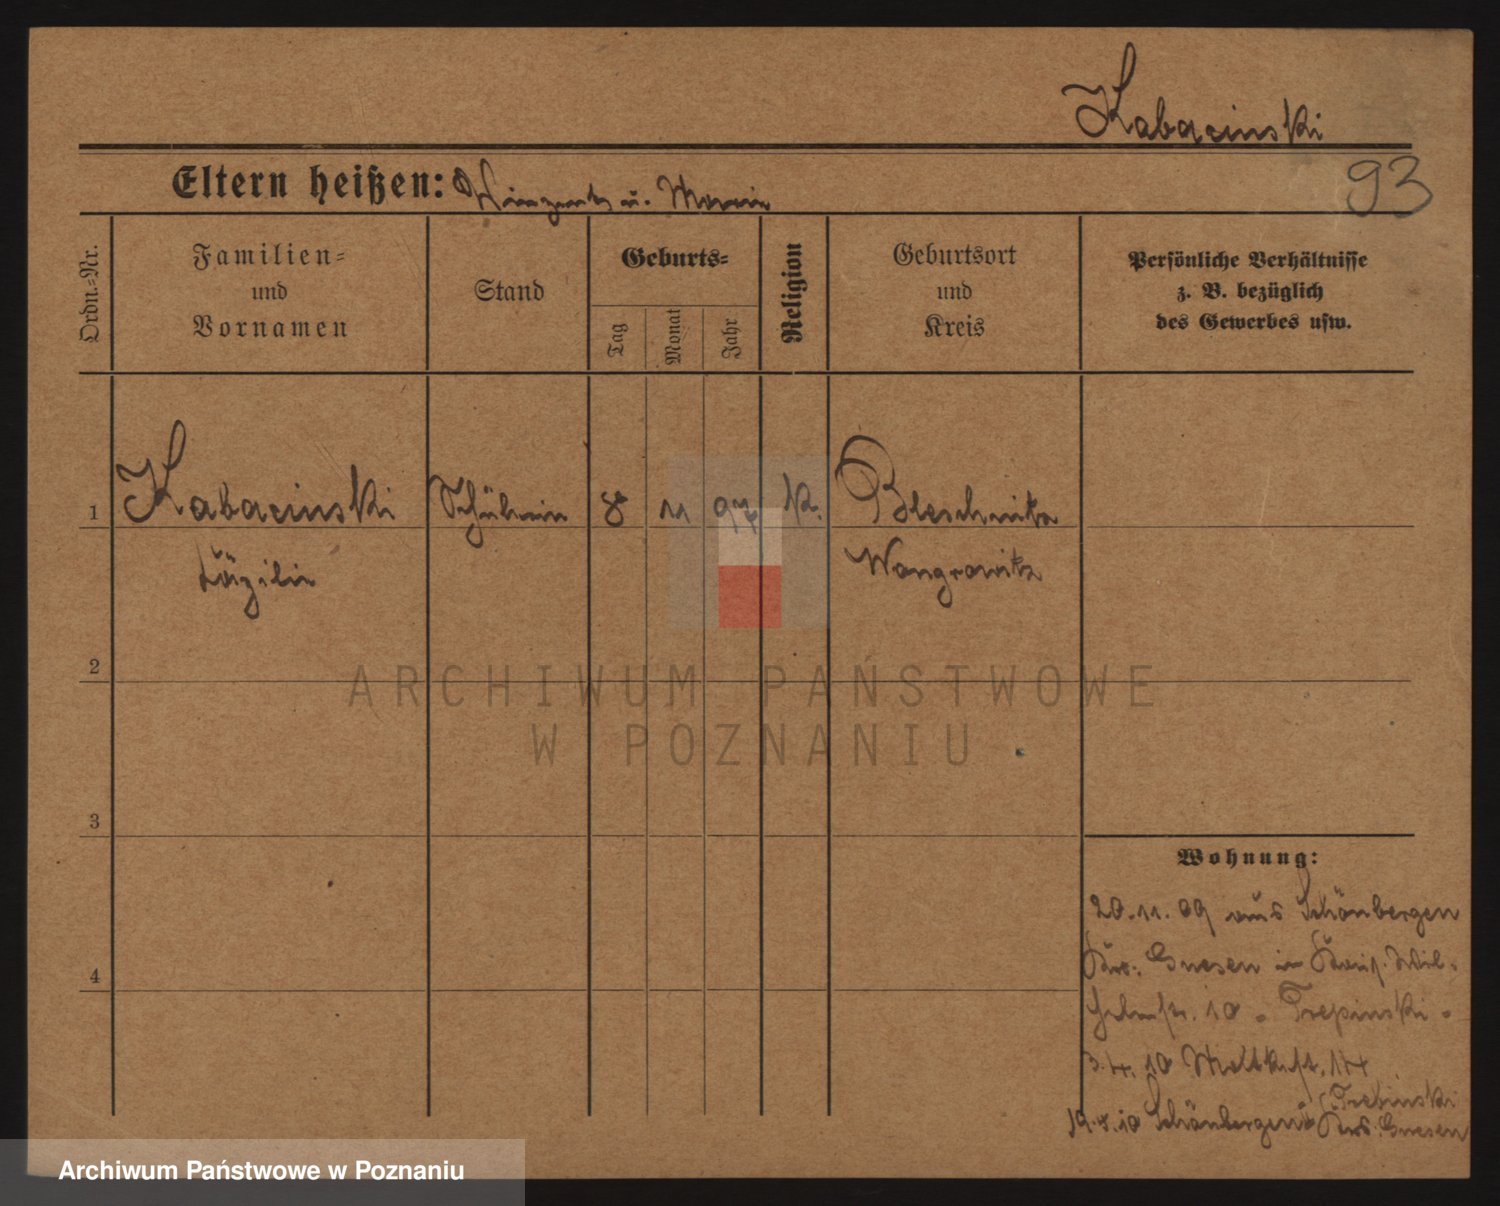 Kabacinski
93
Eltern heißen: Winzent u. Marie
Ordn.=Nr.
Familien=
und
Vornamen
Stand
Geburts=
Tag
Monat
Jahr
Religion
Geburtsort
und
Kreis
Persönliche Verhältnisse
z. B. bezüglich
des Gewerbes usw.
1 Kabacinski Schülerin 8 11 97 K. Bleschnitz
Zäzilie Wongrowitz
2
3
4
Wohnung:
20.11.09 aus Schönbergen
Krs. Gnesen in Kais. Wil-
helmstr. 10 - Trepinski -
3.4.10 14
Trebinski
19.4.10 Schönbergen Krs. Gnesen
ARCHIWUM PAŃSTWOWE
W POZNANIU
Archiwum Państwowe w Poznaniu